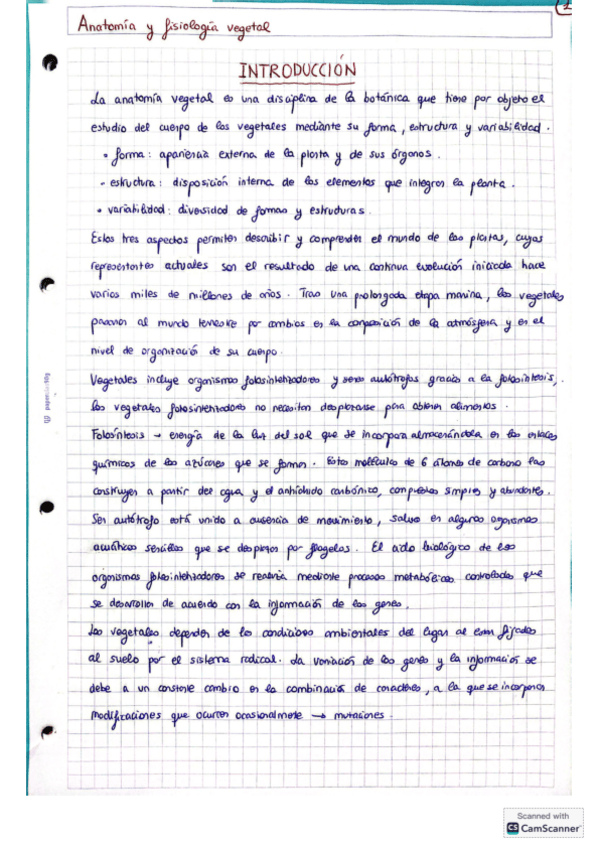 1
Anatomía y fisiología vegetal
INTRODUCCIÓN
La anatomía vegetal es una disciplina de la botánica que tiene por objeto el
estudio del cuerpo de los vegetales mediante su forma, estructura y variabilidad.
• forma: apariencia externa de la planta y de sus órganos.
- estructura: disposición interna de los elementos que integran la planta.
• variabilidad: diversidad de formas y estructuras.
Estos tres aspectos permiten describir y comprender el mundo de las plantas, cuyas
representantes actuales son el resultado de una continua evolución iniciada hace
varios miles de millones de años. Tras una prolongada etapa marina, los vegetales
pasaron al mundo terrestre por cambios en la composición de la atmósfera y en el
nivel de organización de su cuerpo.
Vegetales incluye organismos fotosintetizadores y seres autótrofos gracias a la fotosíntesis,
los vegetales fotosintetizadores no necesitan desplazarse para obtener alimentos.
Fotosíntesis → energía de la luz del sol que se incorpora almacenándola en los enlaces
químicos de los azúcares que se forman. Estas moléculas de 6 átomos de carbono las
construyen a partir del agua y el anhídrido carbónico, compuestos simples y abundantes.
Ser autótrofo está unido a ausencia de movimiento, salvo en algunos organismos
acuáticos sencillos que se desplazan por flagelos. El ciclo biológico de los
organismos fotosintetizadores se realiza mediante procesos metabólicos controlados que
se desarrollan de acuerdo con la información de los genes.
Los vegetales dependen de las condiciones ambientales del lugar al estar fijados
al suelo por el sistema radical. La variación de los genes y la información se
debe a un constante cambio en la combinación de caracteres, a la que se incorporan
modificaciones que ocurren ocasionalmente → mutaciones.
Scanned with
CS CamScanner